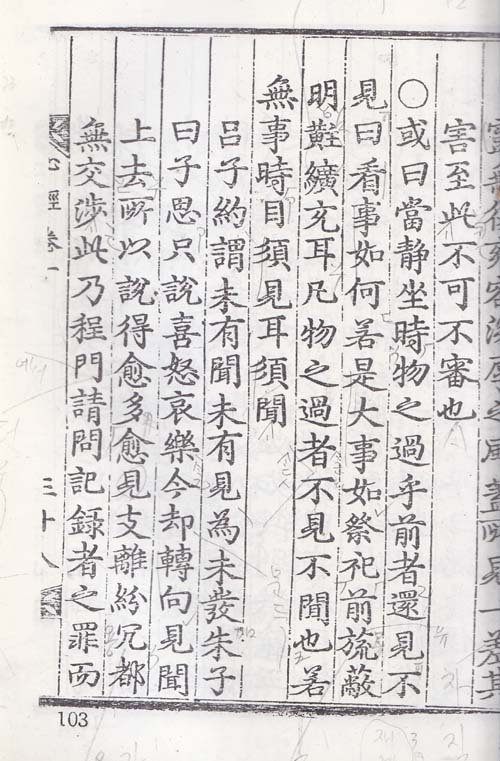 害至此不可不審也
○或曰當静坐時物之過乎前者還見不
見曰看事如何若是大事如祭祀前旒蔽
明黈纊充耳凡物之過者不見不聞也若
無事時目須見耳須聞
呂子約謂未有聞未有見為未發朱子
曰子思只說喜怒哀樂今却轉向見聞
上去所以說得愈多愈見支離紛冗都
無交涉此乃程門請問記録者之罪而
心經卷一
三十八
103